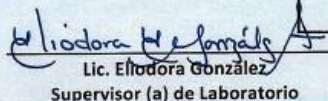 Eliodora H González
Lic. Eliodora González
Supervisor (a) de Laboratorio